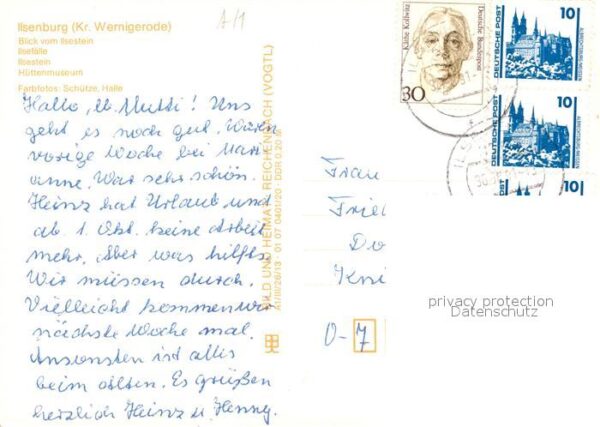 Ilsenburg (Kr. Wernigerode)
Blick vom Ilsestein
Ilsefälle
Ilsestein
Hüttenmuseum
Farbfotos: Schütze, Halle
A/1
Hallo, lb. Mutti! Uns
geht es noch gut. Waren
vorige Woche bei Mari
anne. War sehr schön.
Heinz hat Urlaub und
ab 1. Okt. keine Arbeit
mehr. Aber was hilfts.
Wir müssen durch.
Vielleicht kommen wir
nächste Woche mal.
Ansonsten ist alles
beim alten. Es grüßen
herzlich Heinz u. Henny.
BILD UND HEIMAT REICHENBACH (VOGTL)
A1/III/26/13 01 07 0401/20 DDR 0,20 M
Käthe Kollwitz
Deutsche Bundespost
30
DEUTSCHE POST
10
DEUTSCHE POST
10
POST
10
Frau
Fried
Do
Kni
O-7
privacy protection
Datenschutz